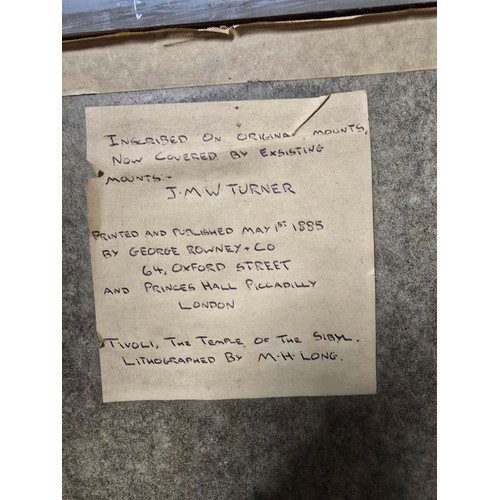 INSCRIBED ON ORIGINAL MOUNTS,
NOW COVERED BY EXSISTING
MOUNTS:-
J.M W TURNER
PRINTED AND PUBLISHED MAY 1ST 1885
BY GEORGE ROWNEY + CO
64, OXFORD STREET
AND PRINCES HALL PICCADILLY
LONDON
TIVOLI, THE TEMPLE OF THE SIBYL.
LITHOGRAPHED BY M.H LONG.